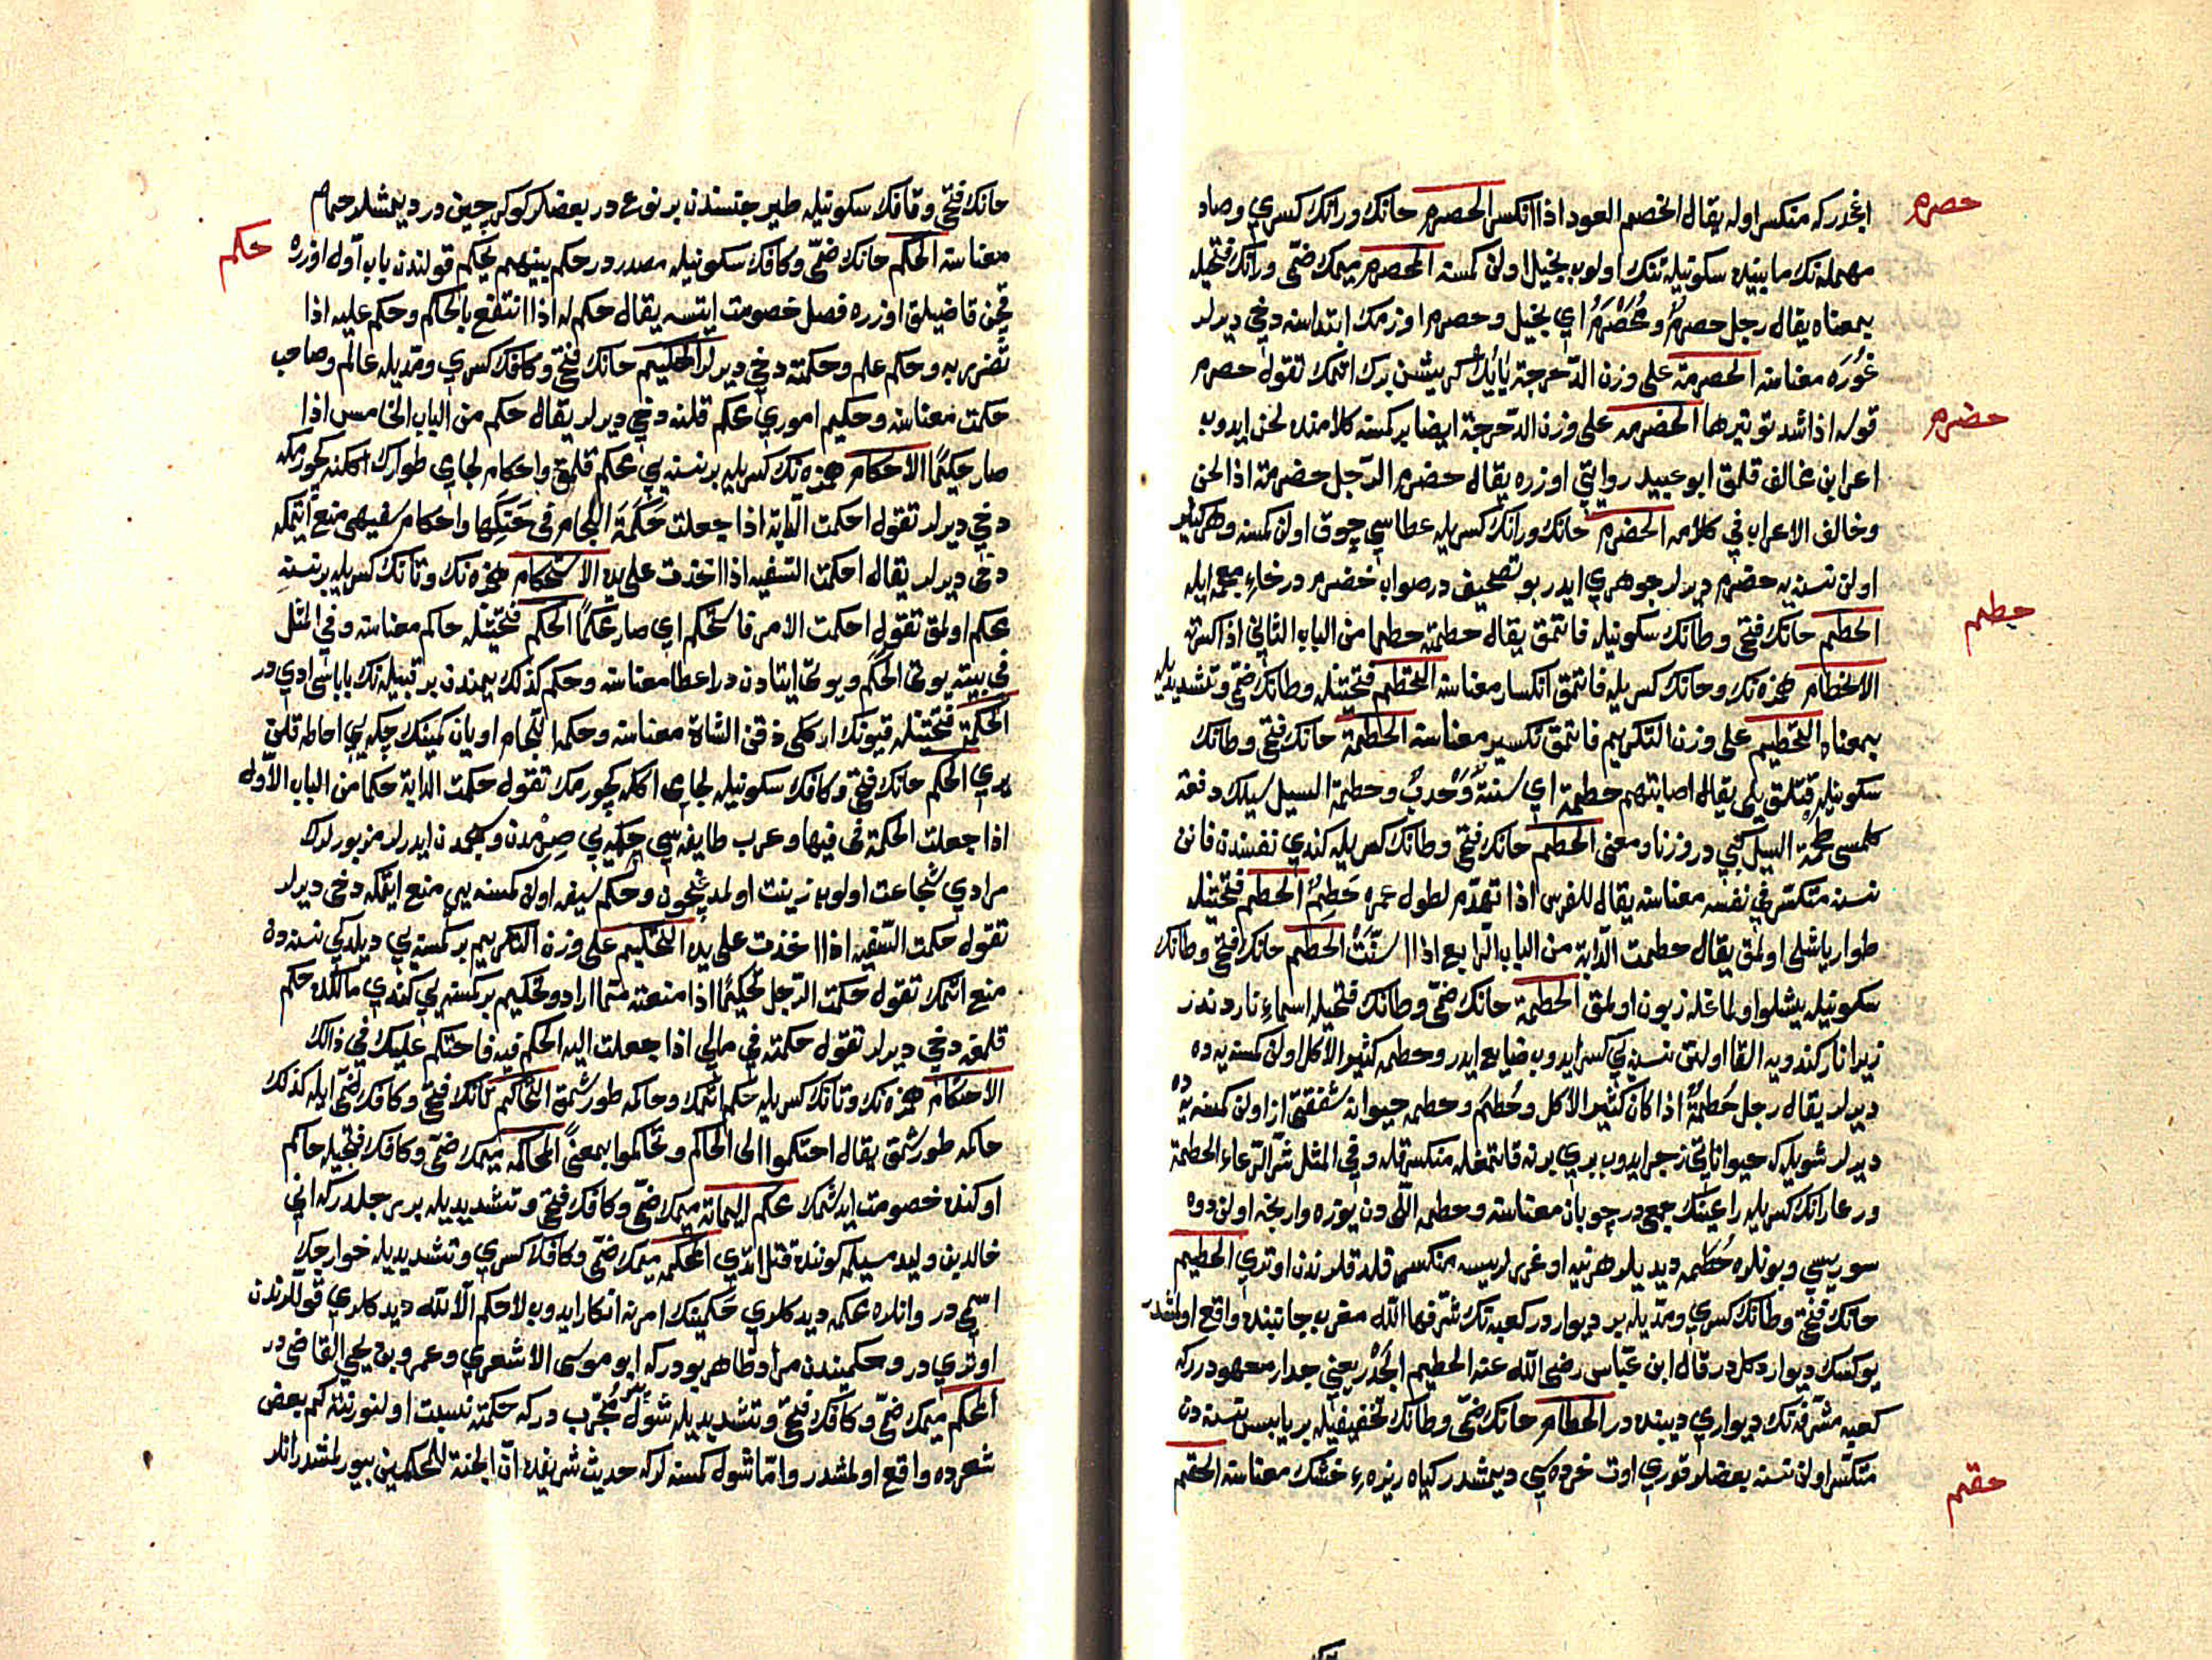 حصرم
اغجدركه منكسر اوله يقال انخصم العود اذا انكسر الحصرم حانك ورانك كسري وصاد
مهمله نك مابينده سكونيله تنك اولوب بخيل اولن كمسنه المحصرم ميمك ضمّى ورانك فتحيله
بمعناه يقال رجل حصرم ومُحَصْرَمٌ اي بخيل وحصرم اوزمك ابتداسنه دخي ديرلر
غُورَه معناسنه الحصرمة على وزن الدّحرجة يايك كريشن برك اتمك تقول حصرم
حضرم
قوله اذا شد توتيرها الحضرمه على وزن الدّحرجة ايضا بركسنه كلامنده لحن ايدوب
اعرابن مخالف قلمق ابو عبيد روايتي اوزره يقال حضرم الرّجل حضرمة اذا لحن
وخالف الاعراب في كلامه الحضرم حانك ورانك كسريله عطاسي چوق اولن كمسنه وهر
اولن نسنه يه حضرم ديرلر جوهري ايدر بو تصحيف در صواب خضرم در خاء معجمه ايله
حطم
الحطم حانك فتحى وطانك سكونيله قاتمق يقال حطمته حطما من الباب الثاني اذا كسرته
الانحطام همزه نك وحانك كسريله قاتمق انكسار معناسنه التحطم فتحتينله وطانك ضمّى وتشديديله
بمعناه التحطيم على وزن التكريم قاتمق تكسير معناسنه الحطمة حانك فتحى وطانك
سكونيله قتلق يلى يقال اصابتهم حطمة اي سنة وَجْدبٌ وحطمة السيل سيلك دفعة
كلمسى طحمة السيل كبي در وزنا ومعنى الحطم حانك فتحى وطانك كسريله كندي نفسندن قانن
نسنه متكسّر في نفسه معناسنه يقال للفرس اذا تهدّم لطول عمره حَطِمٌ الحطم فتحتينله
طوار ياشلى اولمق يقال حطمت الدّابة من الباب الرّابع اذا اسنّتْ الحطم حانك فتحى وطانك
سكونيله يشلو اولماغله زبون اولمق الحطمة حانك ضمّى وطانك فتحيله اسماء ناردندر
زيرا نار كندويه القا اولنن نسنه يي كسر ايدوب ضايع ايدر وحطمه كثير الاكل اولن كمسنه يه ده
ديرلر يقال رجل حُطَمةٌ اذا كان كثير الاكل وحُطَمٌ وحطمه حيوانه شفقتى از اولن كمسنه يه ده
ديرلر شويله كه حيواناتى زجر ايدوب بري برنه قاتمغله منكسر قله وفي المثل شرّ الرّعاء الحطمة
ورعا رانك كسريله راعينك جمعى در چوبان معناسنه وحطمه اللّى دن يوزه وارنجه اولن دوه
سوريسي وبونلره حُطَمه ديديلر هر نيه اوغرلريسه منكسر قلدقلرندن اوتري الحطيم
حانك فتحى وطانك كسري ومدّيله بر ديوار در كعبه نك شرّفها الله مغرب جانبنده واقع اولمشدر
يوكسك ديوار دكلدر قال ابن عبّاس رضى الله عنه الحطيم الجَدْر يعنى جدار معهود دركه
كعبه مشرّفه نك ديواري ديبنده در الحطام حانك ضمّى وطانك تخفيفيله بر يابس نسنه دن
متكسّر اولن نسنه بعضلر قوري اوت خرده سى ديمشدر كياه ريزهء خشك معناسنه الحقم
حقم
حانك فتحى وقافك سكونيله طير جنسندن بر نوع در بعضلر كوكرچين در ديمشلر حمام
حكم
معناسنه الحكم حانك ضمّى وكافك سكونيله مصدر در حكم بينهم يحكم قولندن باب اوّل اوزره
قچن قاضيلق اوزره فصل خصومت ايتسه يقال حكم له اذا انتفع بالحكم وحكم عليه اذا
تضرر به وحكم علم وحكمته دخي ديرلر الحكيم حانك فتحى وكافك كسري ومدّيله عالم وصاحب
حكمت معناسنه وحكيم اموري محكم قلنه دخي ديرلر يقال حكم من الباب الخامس اذا
صار حكيمًا الاحكام همزه نك كسريله بر نسنه يي محكم قلمق واحكام لجامى طوارك اكنه كچورمكه
دخي ديرلر تقول احكمت الدّابة اذا جعلت حَكَمَة اللّجام فى حَنَكِها واحكام سفيهى منع اتمكه
دخى ديرلر يقال احكمت السّفيه اذا اخذت على يده الاستحكام همزه نك وتانك كسريله بر نسنه
محكم اولمق تقول احكمت الامر فاستحكم اي صار محكمًا الحكم فتحتينله حاكم معناسنه وفي المثل
فى بيته يوتى الحكم ويوتى ايتادن در اعطا معناسنه وحكم كذلك يمندن بر قبيله نك باباسى ادي در
الحكمة فتحتينله قيونك اركلى ذقن الشاة معناسنه وحكمة اللّجام اويان كمينك چكه يي احاطه قلن
يري الحكم حانك فتحى وكافك سكونيله لجامى اكنه كچورمك تقول حكمت الدابة حكما من الباب الاوّل
اذا جعلت الحكمة فى فيها وعرب طايفه سي حكمه يي صِرْمدن وكنبدن ايدرلر مزبورلرك
مرادي شجاعت اولوب زينت اولمديغيچون وحكم سفيه اولن كمسنه يي منع ايتمكه دخى ديرلر
تقول حكمت السّفيه اذا اخذت على يده التحكيم على وزن التكريم بركمسنه يي ديلدكى نسنه ده
منع اتمك تقول حكمت الرّجل تحكيمًا اذا منعته ممّا اراد وتحكيم بركسنه يي كندي مالكده حكم
قلمغه دخي ديرلر تقول حكمته في مالي اذا جعلت اليه الحكم فيه فاحتكم عليك في ذالك
الاحتكام همزه نك وتانك كسريله حكم اتمك وحاكمه طورشمق التحاكم تانك فتحى وكافك ضمّى ايله كذلك
حاكمه طورشمق يقال احتكموا الى الحاكم وتحاكموا بمعنىً المحاكمه ميمك ضمّى وكافك فتحيله حاكم
اوكنده خصومت ايدشمك محكم اليمامة ميمك ضمّى وكافك فتحى وتشديديله بر رجلدر كه انى
خالد بن وليد مسيلمه كوننده قتل اتدي المحكمه ميمك ضمّى وكافك كسري وتشديديله خوارجك
اسمى در وانلره محكمه ديدكلري حَكمينك امرنه انكار ايدوب لا حكم الّا لله ديدكلري قوللرندن
اوتري در وحكميندن مراد ظاهر بودر كه ابو موسى الاشعري وعمرو بن يحيى القاضى در
المحكم ميمك ضمّى وكافك فتحى وتشديديله شول مجرّب در كه حكمته نسبت اولنور نته كم بعض
شعرده واقع اولمشدر وامّا شول كمسنه لر كه حديث شريفده انّ الجنة للمحكمين بيورلمشدر انلر